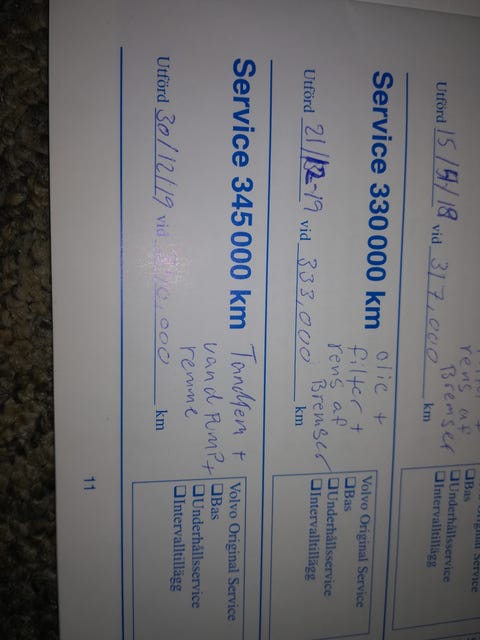 Utförd 15/5/18 vid 317,000 km
rens af
Bremser
Original Service
Bas
Underhållsservice
Intervalltillägg
Service 330000 km
olie +
filter +
rens af
Bremser
Utförd 21/12-19 vid 333,000 km
Volvo Original Service
Bas
Underhållsservice
Intervalltillägg
Service 345000 km
Tandrem +
vand PUMP +
remme
Utförd 30/12/19 vid 340,000 km
Volvo Original Service
Bas
Underhållsservice
Intervalltillägg
11